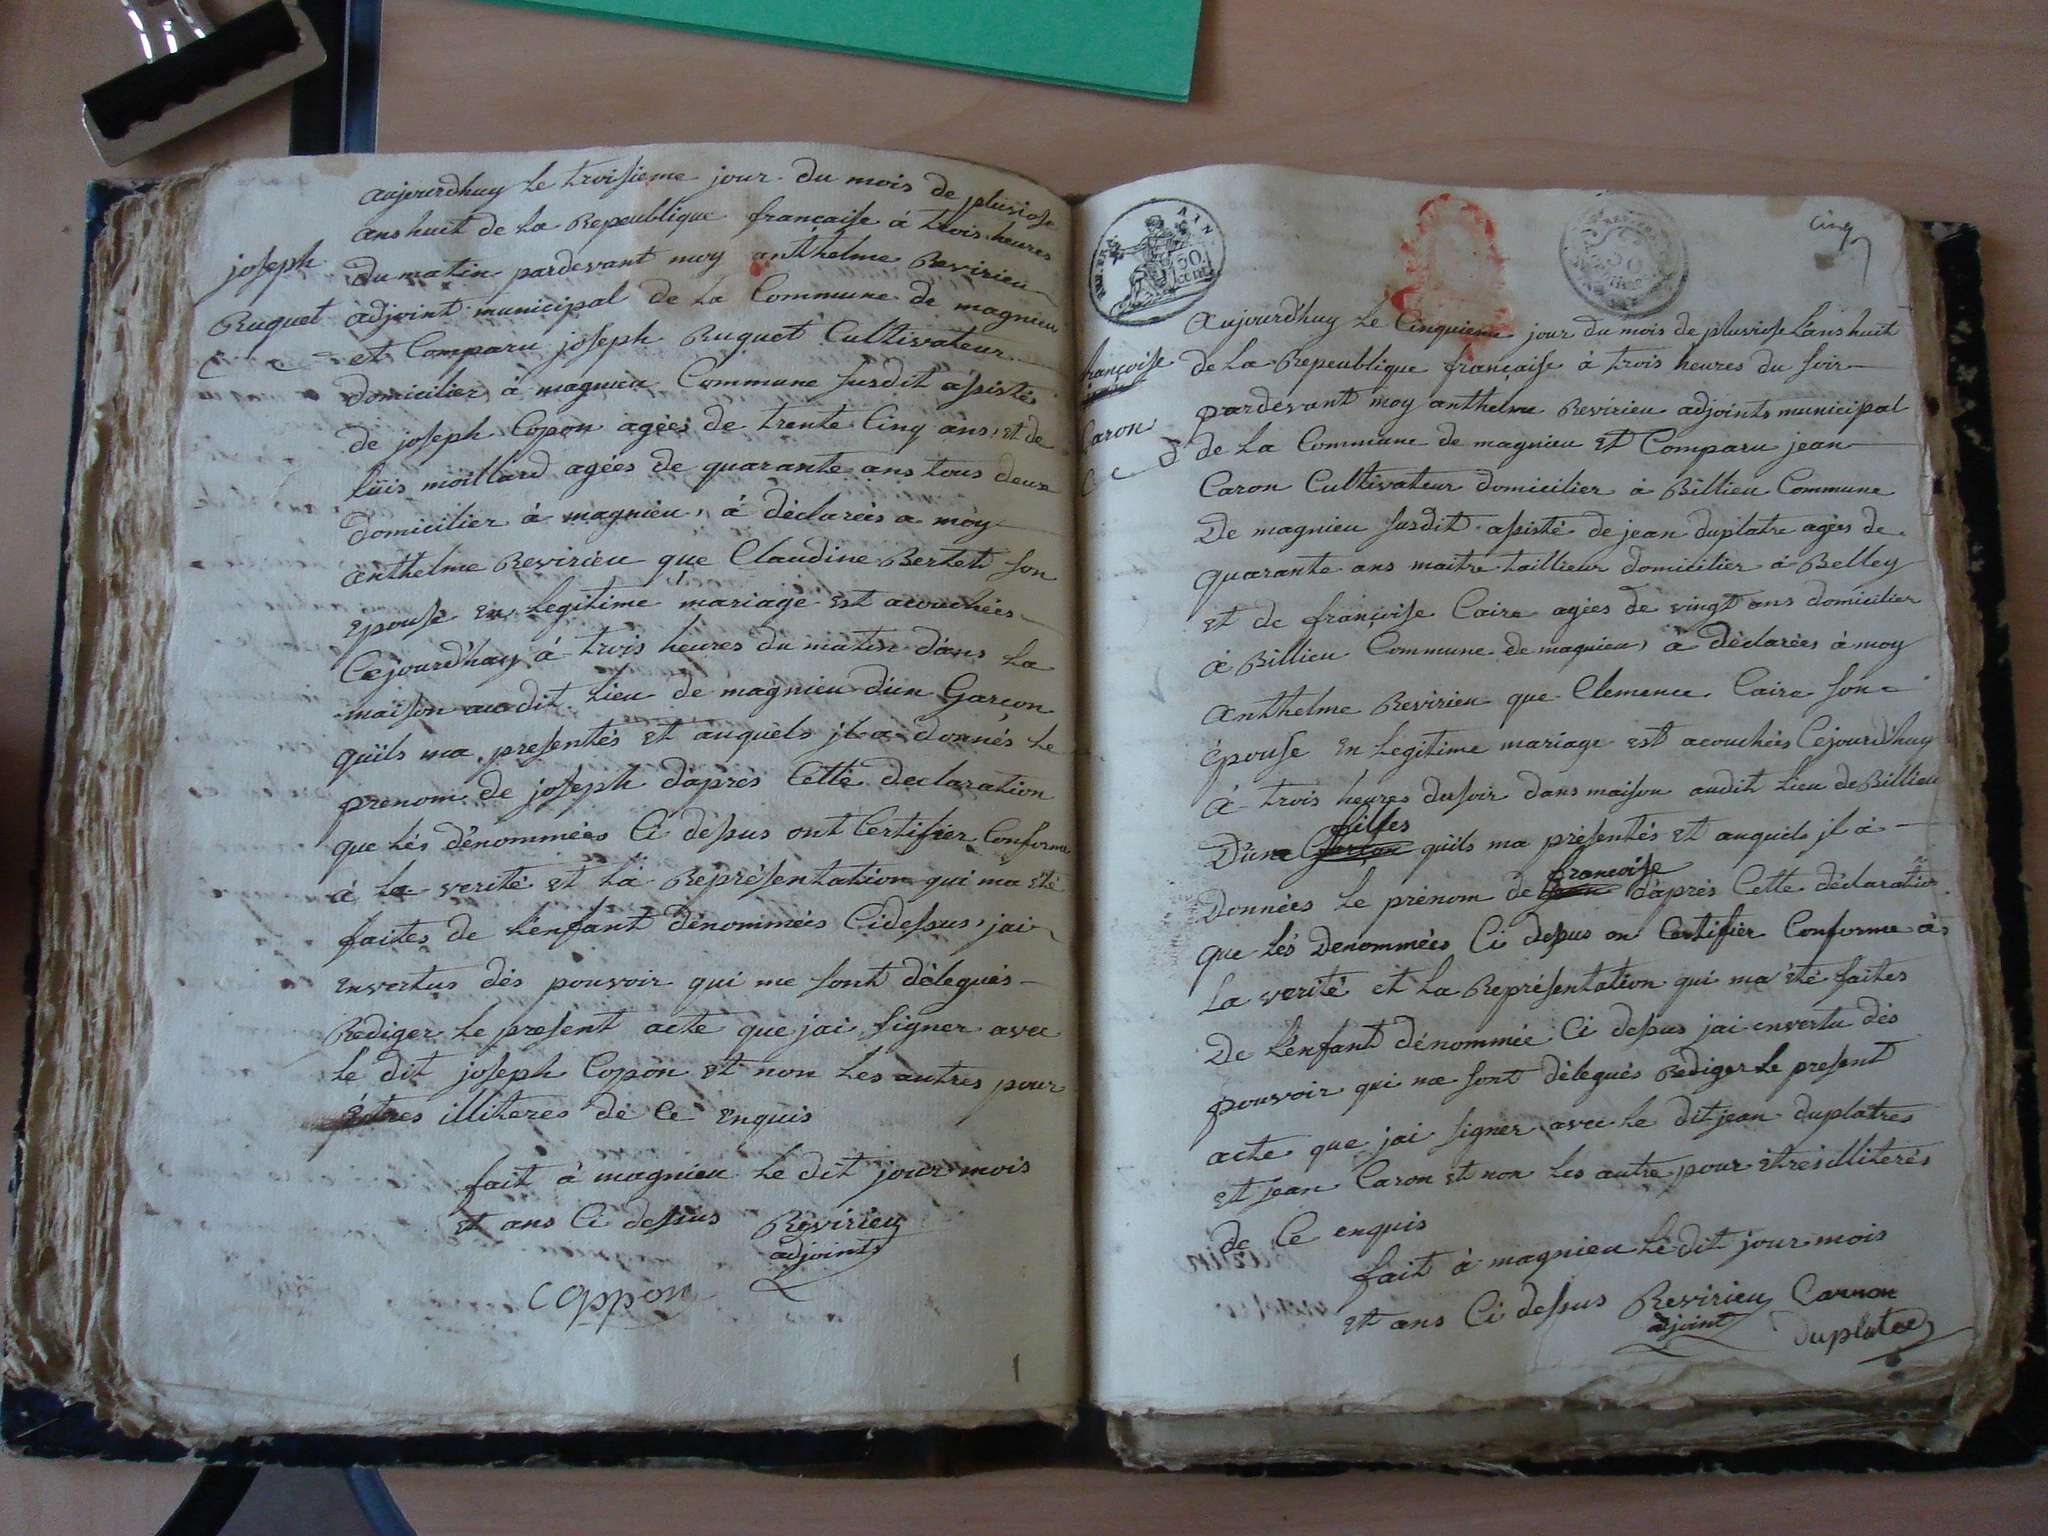 aujourdhuy le troisieme jour du mois de pluviose
ans huit de la Repeublique française à trois heures
du matin pardevant moy anthelme Revirieu
adjoint municipal de la Commune de magnieu
et Comparu joseph Ruquet Cultivateur
domicilier à magnieu Commune susdit assistés
de joseph Copon agées de trente Cinq ans, et de
luis moillard agées de quarante ans tous deux
domicilier à magnieu, à déclareés a moy
anthelme Revirieu que Claudine Bertet son
epouse en legitime mariage est acouchées
Cejourdhuy à trois heures du matin dans la
maison audit lieu de magnieu dun Garçon
quils ma presentés et auquels jl a donnés le
prenom de joseph daprès Cette declaration
que lés dénommées Ci dessus ont Certifier Conforme
à la verité et là Représentation qui ma été
faites de lénfant dénommées Cidessus, jai
envertus dés pouvoir qui me sont délegués
Rediger le present acte que jai signer avec
le dit joseph Copon et non les autres pour
êtres illiteres de Ce enquis
fait à magnieu le dit jour mois
et ans Ci dessus Revirieu
adjoint
coppon
joseph
Ruquet
Cinq
50
cent
AIN
Aujourdhuy le Cinquieme jour du mois de pluviose Lans huit
de la Repeublique française à trois heures du soir
pardevant moy anthelme Revirieu adjoints municipal
de la Commune de magnieu et Comparu jean
Caron Cultivateur domicilier à Billieu Commune
De magnieu susdit assisté de jean duplatre agées de
quarante ans maitre taillieur domicilier à Belley
et de françoise Caire agées de vingt ans domicilier
à Billieu Commune de magnieu, à déclarées à moy
anthelme Revirieu que Clemence Caire son
épouse en legitime mariage est acouchées Cejourdhuy
à trois heures dusoir dans maison audit lieu de Billieu
filles
D'une Garçon quils ma présentés et auquels jl à
françoise
Données le prénom de jean daprés Cette déclaration
que lés Denommées Ci dessus on Certifier Conforme à
la verité et la Représentation qui ma été faites
De lénfant dénommée Ci dessus jai envertu dés
pouvoir qui me sont délegués Rediger le present
acte que jai signer avec le dit jean duplatres
et jean Caron et non les autre pour êtres illiterés
de Ce enquis
fait à magnieu le dit jour mois
et ans Ci dessus Revirieu Carron
adjoint duplatre
françoise
Caron